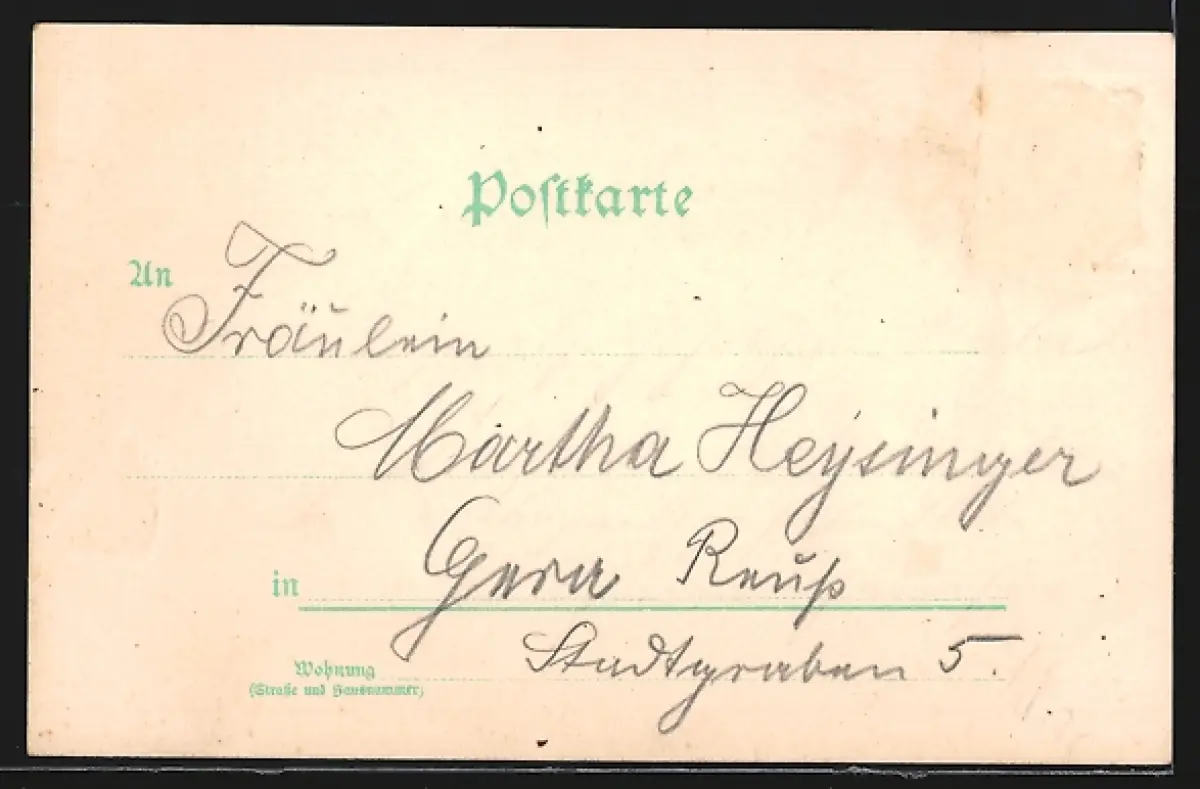 Postkarte
An
Fräulein
Martha Heysinger
in Gera Reuß
Wohnung
(Straße und Hausnummer)
Stadtgraben 5.